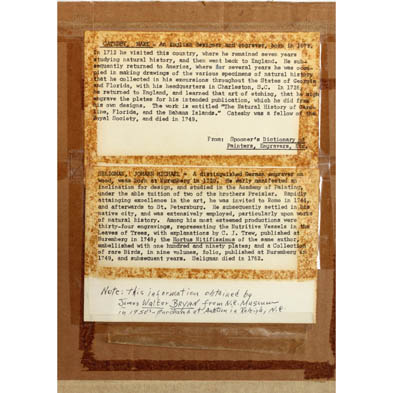 CATESBY, MARK - An English designer and engraver, born in 1679.
In 1712 he visited this country, where he remained seven years
studying natural history, and then went back to England. He sub-
sequently returned to America, where for several years he was occu-
pied in making drawings of the various specimens of natural history
that he collected in his excursions throughout the States of Georgia
and Florida, with his headquarters in Charleston, S.C. In 1726,
he returned to England, and learned that art of etching, that he might
engrave the plates for his intended publication, which he did from
his own designs. The work is entitled "The Natural History of Caro-
line, Florida, and the Bahama Islands." Catesby was a fellow of the
Royal Society, and died in 1749.
From: Spooner's Dictionary of
Painters, Engravers, Etc.
SELIGMAN, JOHANN MICHAEL - A distinguished German engraver on
wood, was born at Nuremberg in 1720. He early manifested an
inclination for design, and studied in the Academy of Painting,
under the able tuition of two of the brothers Preisler. Rapidly
attaining excellence in the art, he was invited to Rome in 1744,
and afterwards to St. Petersburg. He subsequently settled in his
native city, and was extensively employed, particularly upon works
of natural history. Among his most esteemed productions were
thirty-four engravings, representing the Nutritive Vessels in the
Leaves of Trees, with explanations by C. J. Trew, published at
Nuremberg in 1748; the Hortus Nitifissimus of the same author,
embellished with one hundred and ninety plates; and a Collection
of rare Birds, in nine volumes, folio, published at Nuremberg in
1749, and subsequent years. Seligman died in 1762.
Note: This information obtained by
James Walter BRYAN from N.C. Museum
in 1950's - purchased at Auction in Raleigh, N.C.